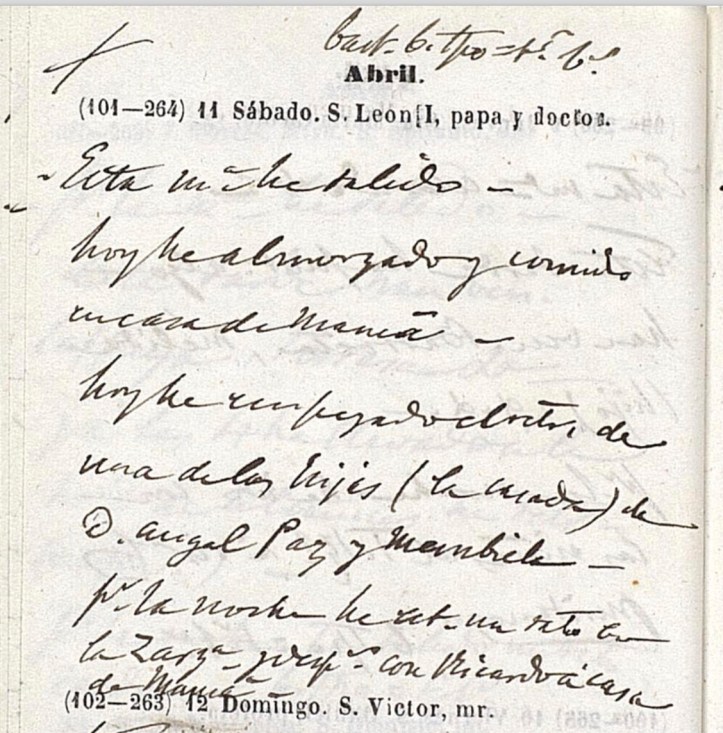 Abril.
(101—264) 11 Sábado. S. León I, papa y doctor.
Esta mª he salido —
hoy he almorzado y comido
en casa de Mamá —
hoy he empezado el retrº de
una de las hijas (la casada) de
D. Angel Paz y Membiela —
pr la noche he est. un rato en
la Zarzª y despª con Ricardo á casa
de Mamá
(102—263) 12 Domingo. S. Victor, mr.